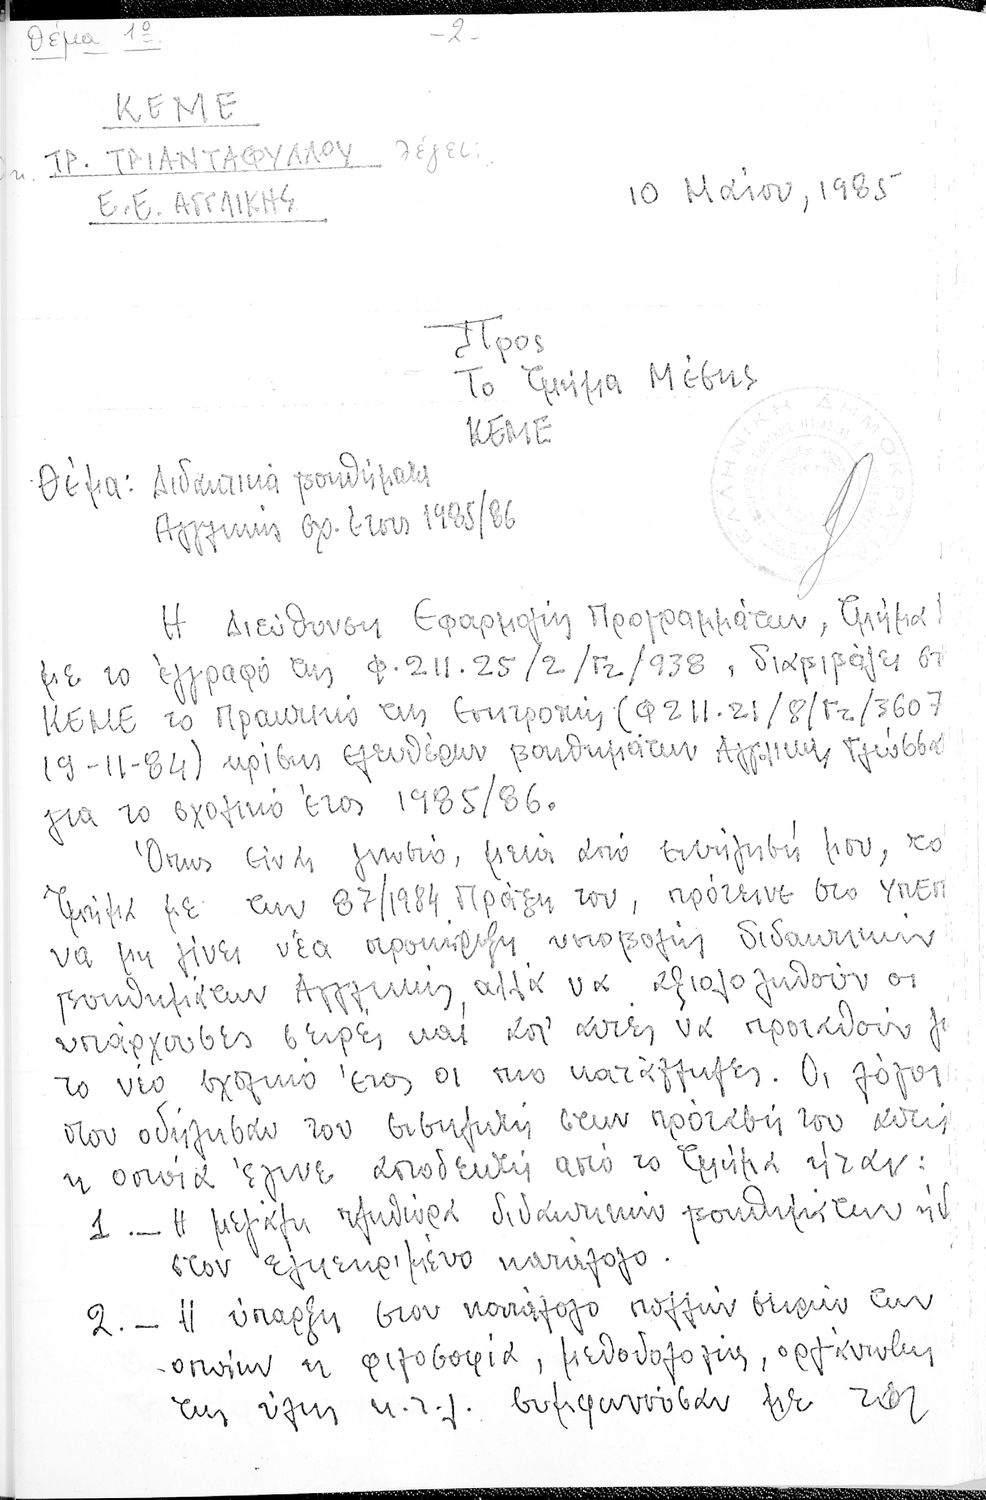 Θέμα 1ο
-2-
ΚΕΜΕ
ΤΡ. ΤΡΙΑΝΤΑΦΥΛΛΟΥ λέγει:
Ε.Ε. ΑΓΓΛΙΚΗΣ
10 Μαΐου, 1985
Προς
Το Τμήμα Μέσης
ΚΕΜΕ
ΕΛΛΗΝΙΚΗ ΔΗΜΟΚΡΑΤΙΑ
Θέμα: Διδακτικά βοηθήματα
Αγγλικής σχ. έτους 1985/86
Η Διεύθυνση Εφαρμογής Προγραμμάτων, Τμήμα
με το έγγραφό της Φ.211.25/2/Γ2/938, διαβιβάζει στ
ΚΕΜΕ το Πρακτικό της Επιτροπής (Φ211.21/8/Γ2/3607
19-11-84) κρίσης ελευθέρων βοηθημάτων Αγγλικής Γλώσσα
για το σχολικό έτος 1985/86.
Όπως είναι γνωστό, μετά από εισήγησή μου, το
Τμήμα με την 87/1984 Πράξη του, πρότεινε στο ΥΠΕΠ
να μη γίνει νέα προκήρυξη υποβολής διδακτικών
βοηθημάτων Αγγλικής, αλλά να αξιολογηθούν οι
υπάρχουσες σειρές και απ' αυτές να προταθούν γ
το νέο σχολικό έτος οι πιο κατάλληλες. Οι λόγοι
που οδήγησαν τον εισηγητή στην πρότασή του αυτή,
η οποία έγινε αποδεκτή από το Τμήμα ήταν:
1.— Η μεγάλη πληθώρα διδακτικών βοηθημάτων ήδ
στον εγκεκριμένο κατάλογο.
2.— Η ύπαρξη στον κατάλογο πολλών σειρών των
οποίων η φιλοσοφία, μεθοδολογία, οργάνωση
της ύλης κ.τ.λ. συμφωνούσαν με